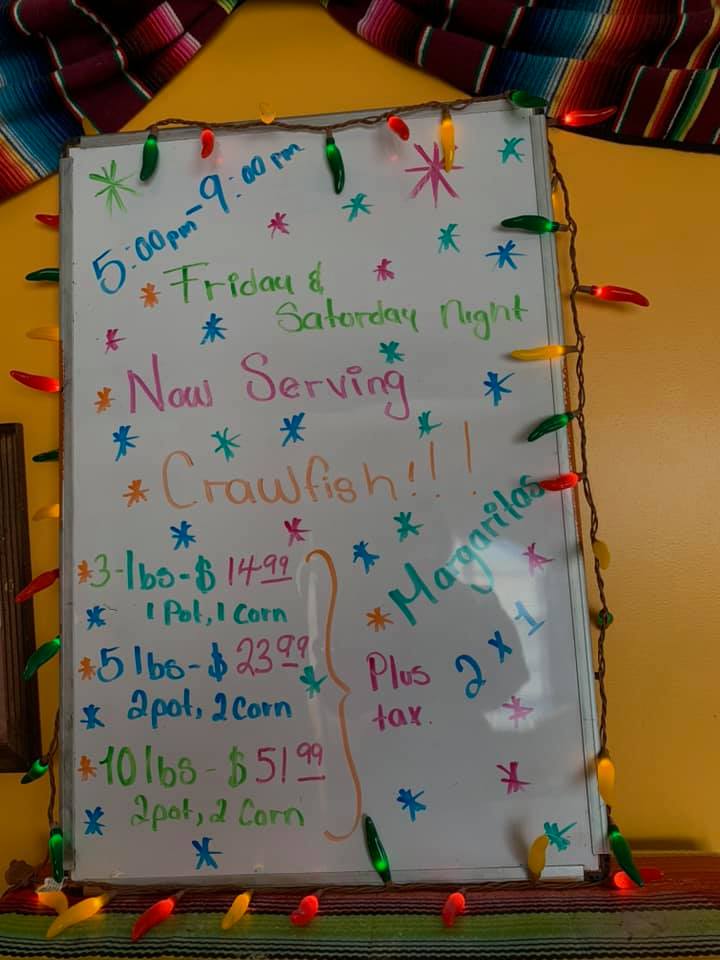 5:00pm-9:00pm
Friday &
Saturday night
Now Serving
Crawfish!!!
3-lbs-$ 14.99
1 Pot, 1 Corn
5 lbs-$ 23.99
2pot, 2 Corn
10 lbs-$ 51.99
2pot, 2 Corn
Plus
tax.
Margaritas
2 x 1